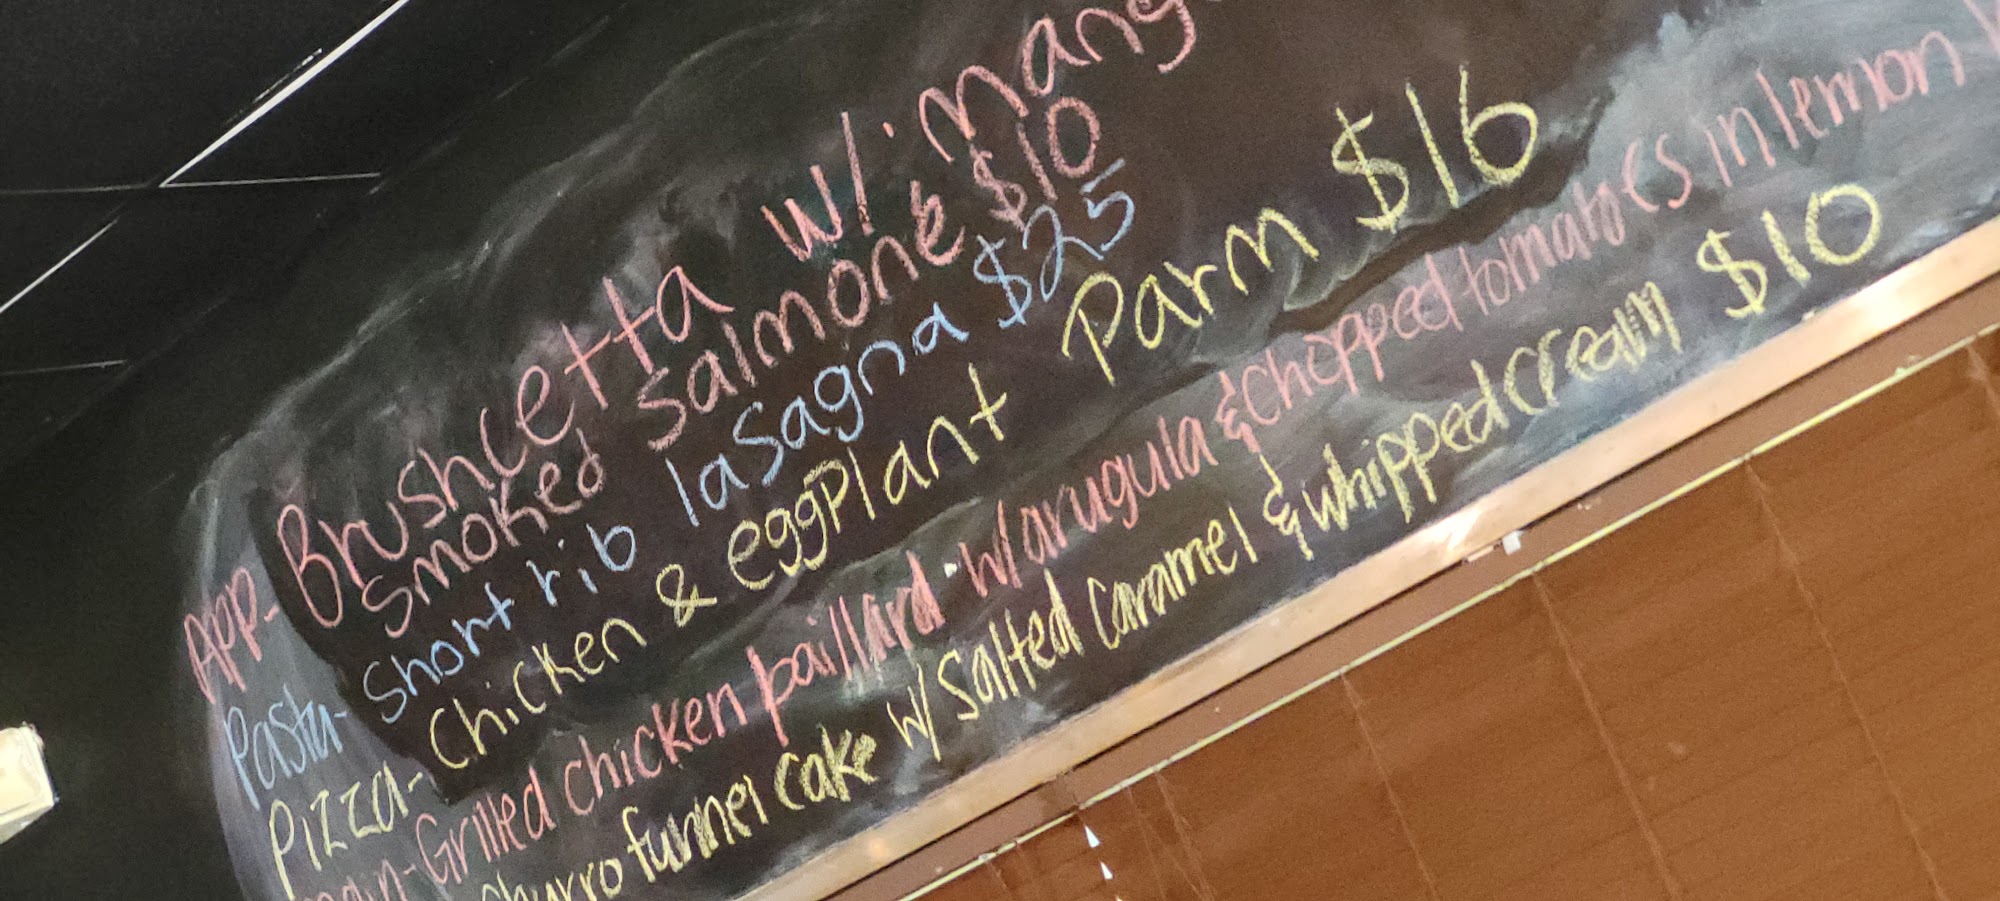 App- Brushcetta w/ mang
smoked salmone $10
Pasta- Short rib lasagna $25
Pizza- Chicken & eggplant Parm $16
main- Grilled chicken paillard w/ arugula & chopped tomatoes in lemon
churro funnel cake w/ salted caramel & whipped cream $10